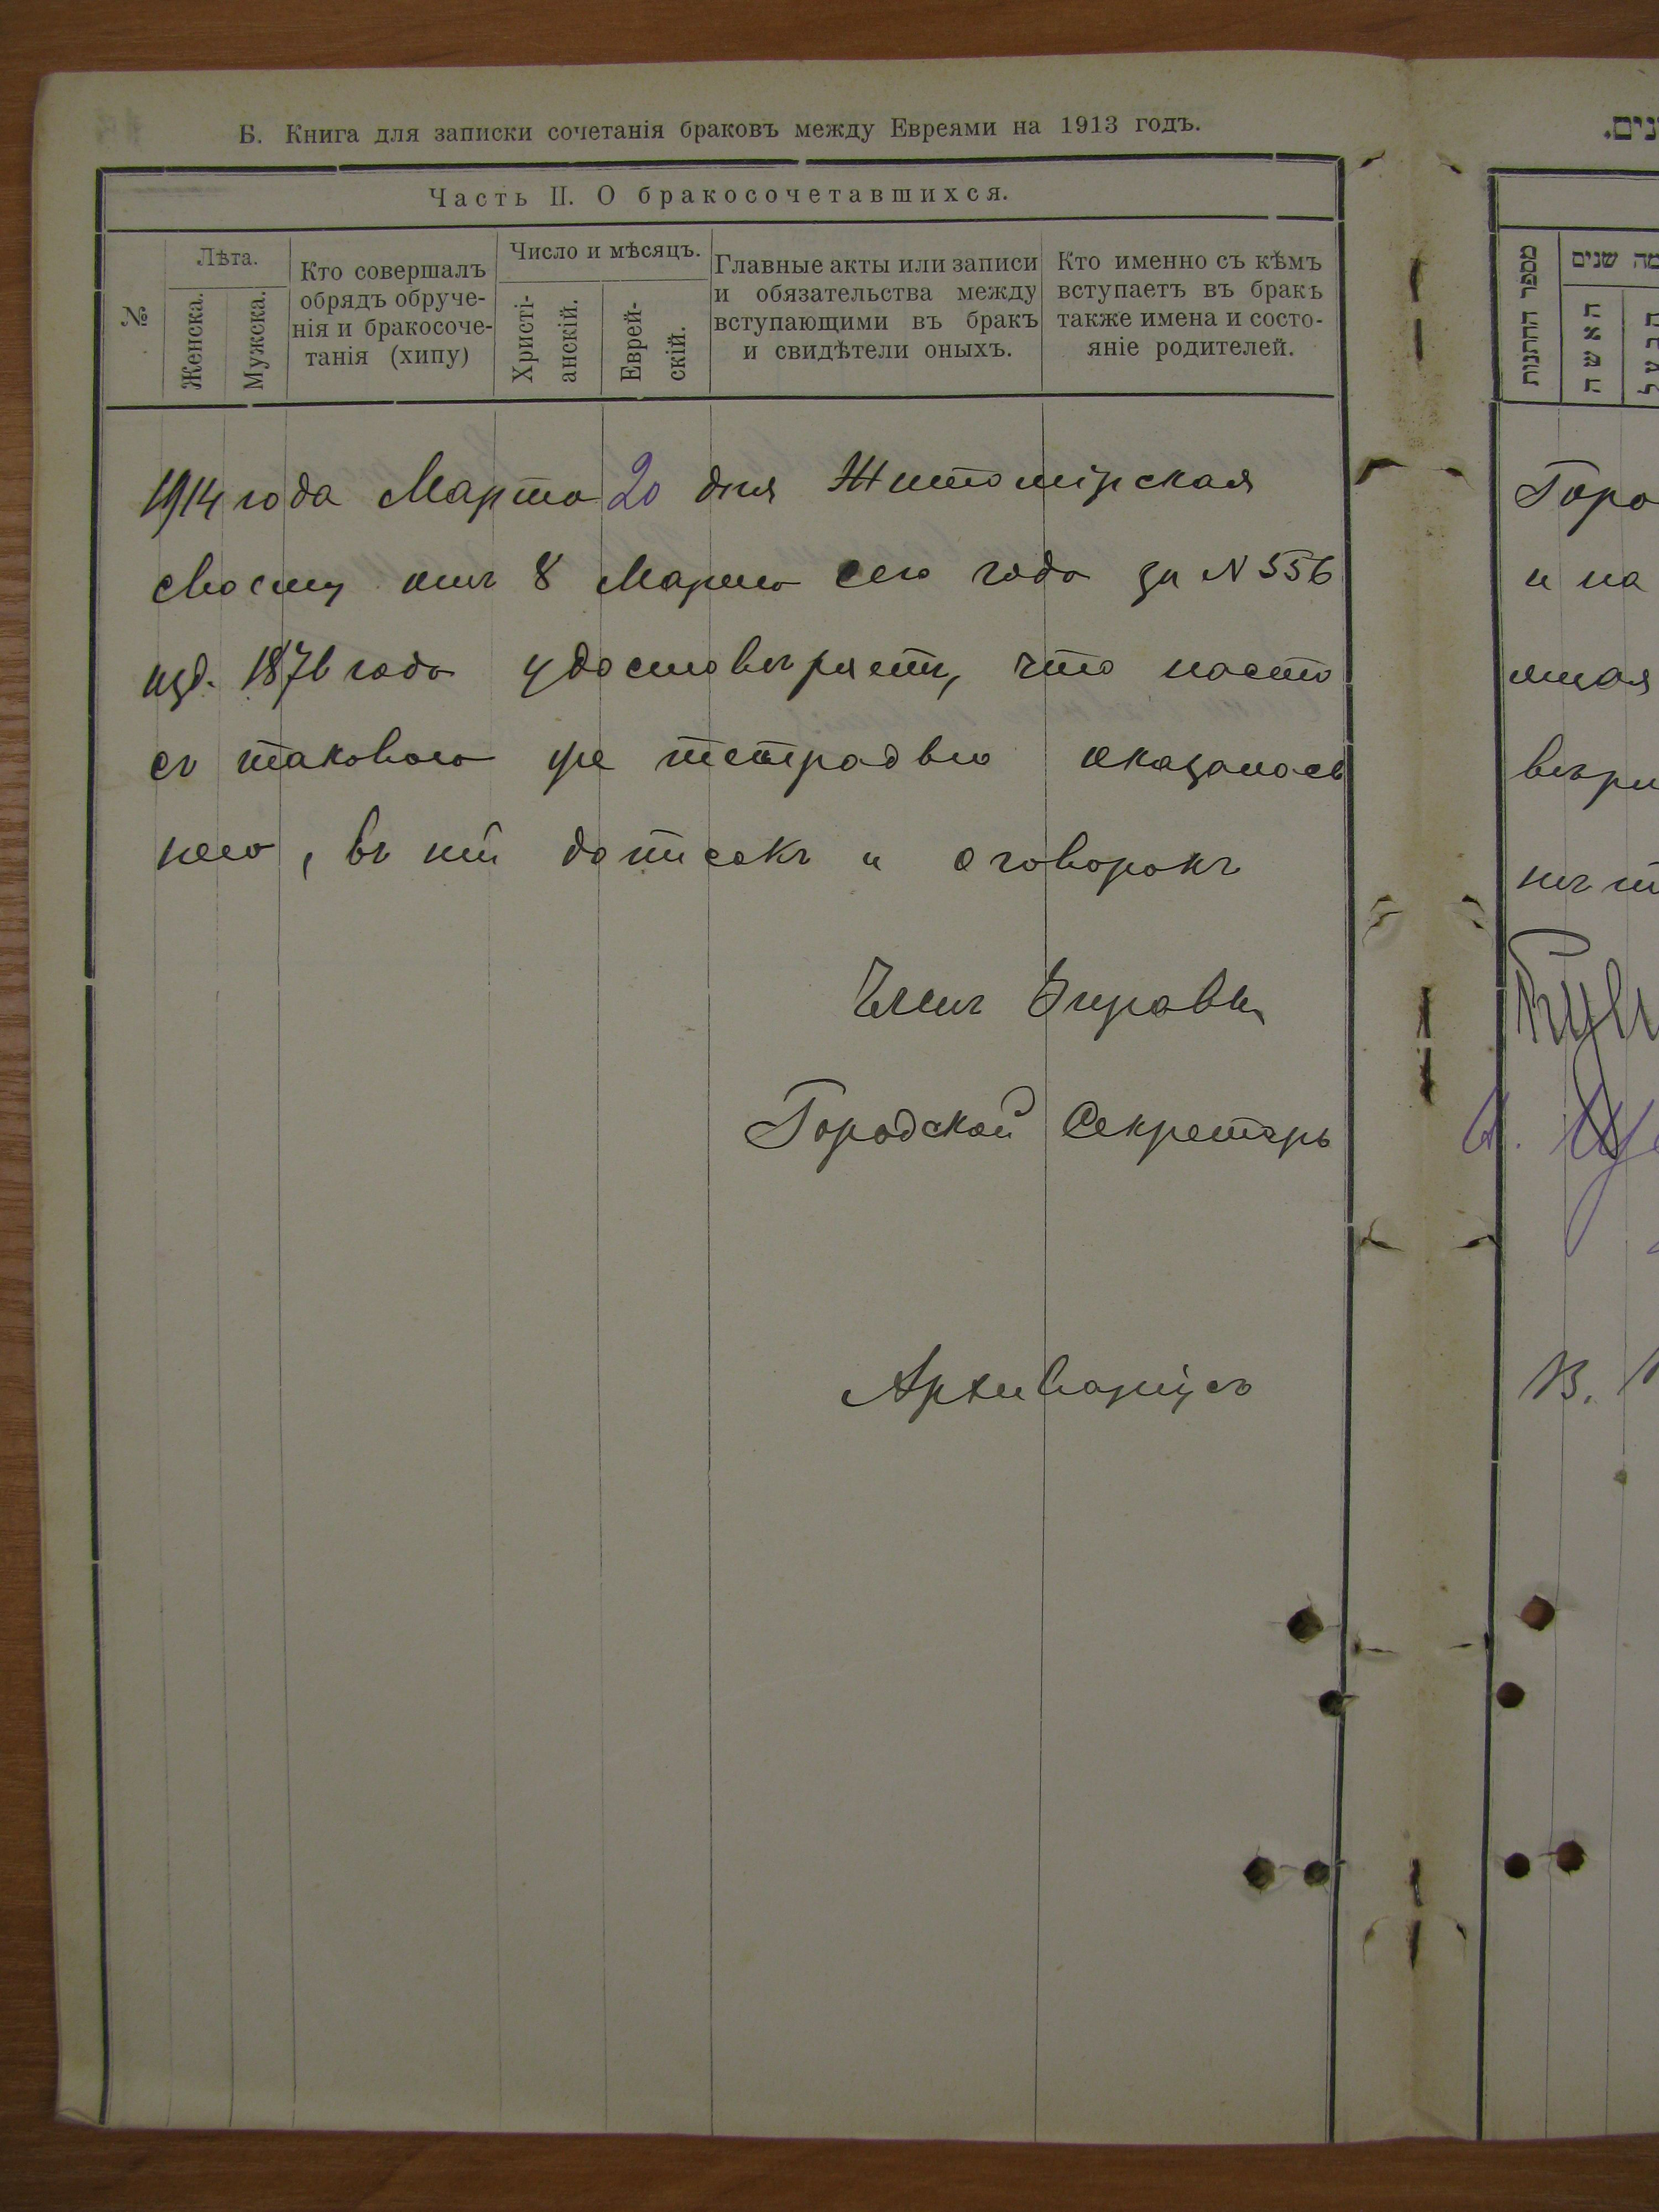 Б. Книга для записки сочетанія браковъ между Евреями на 1913 годъ.
Часть II. О бракосочетавшихся.
№
Лѣта.
Женска.
Мужска.
Кто совершалъ
обрядъ обруче-
нія и бракосоче-
танія (хипу)
Число и мѣсяцъ.
Христі-
анскій.
Еврей-
скій.
Главные акты или записи
и обязательства между
вступающими въ бракъ
и свидѣтели оныхъ.
Кто именно съ кѣмъ
вступаетъ въ бракъ
также имена и состо-
яніе родителей.
1914 года Марта 20 дня Житомірская
своему отъ 8 Марта сего года за N 556
изд. 1876 года удостовѣряетъ, что насто
съ таковою же тетрадью оказалось
него, въ ней дописокъ и оговорокъ
Членъ Управы
Городской Секретарь
Архиваріусъ
נים.
מספר החתנות
מה שנים
האשה
הבעל
Горо
и на
ящая
вѣри
В.